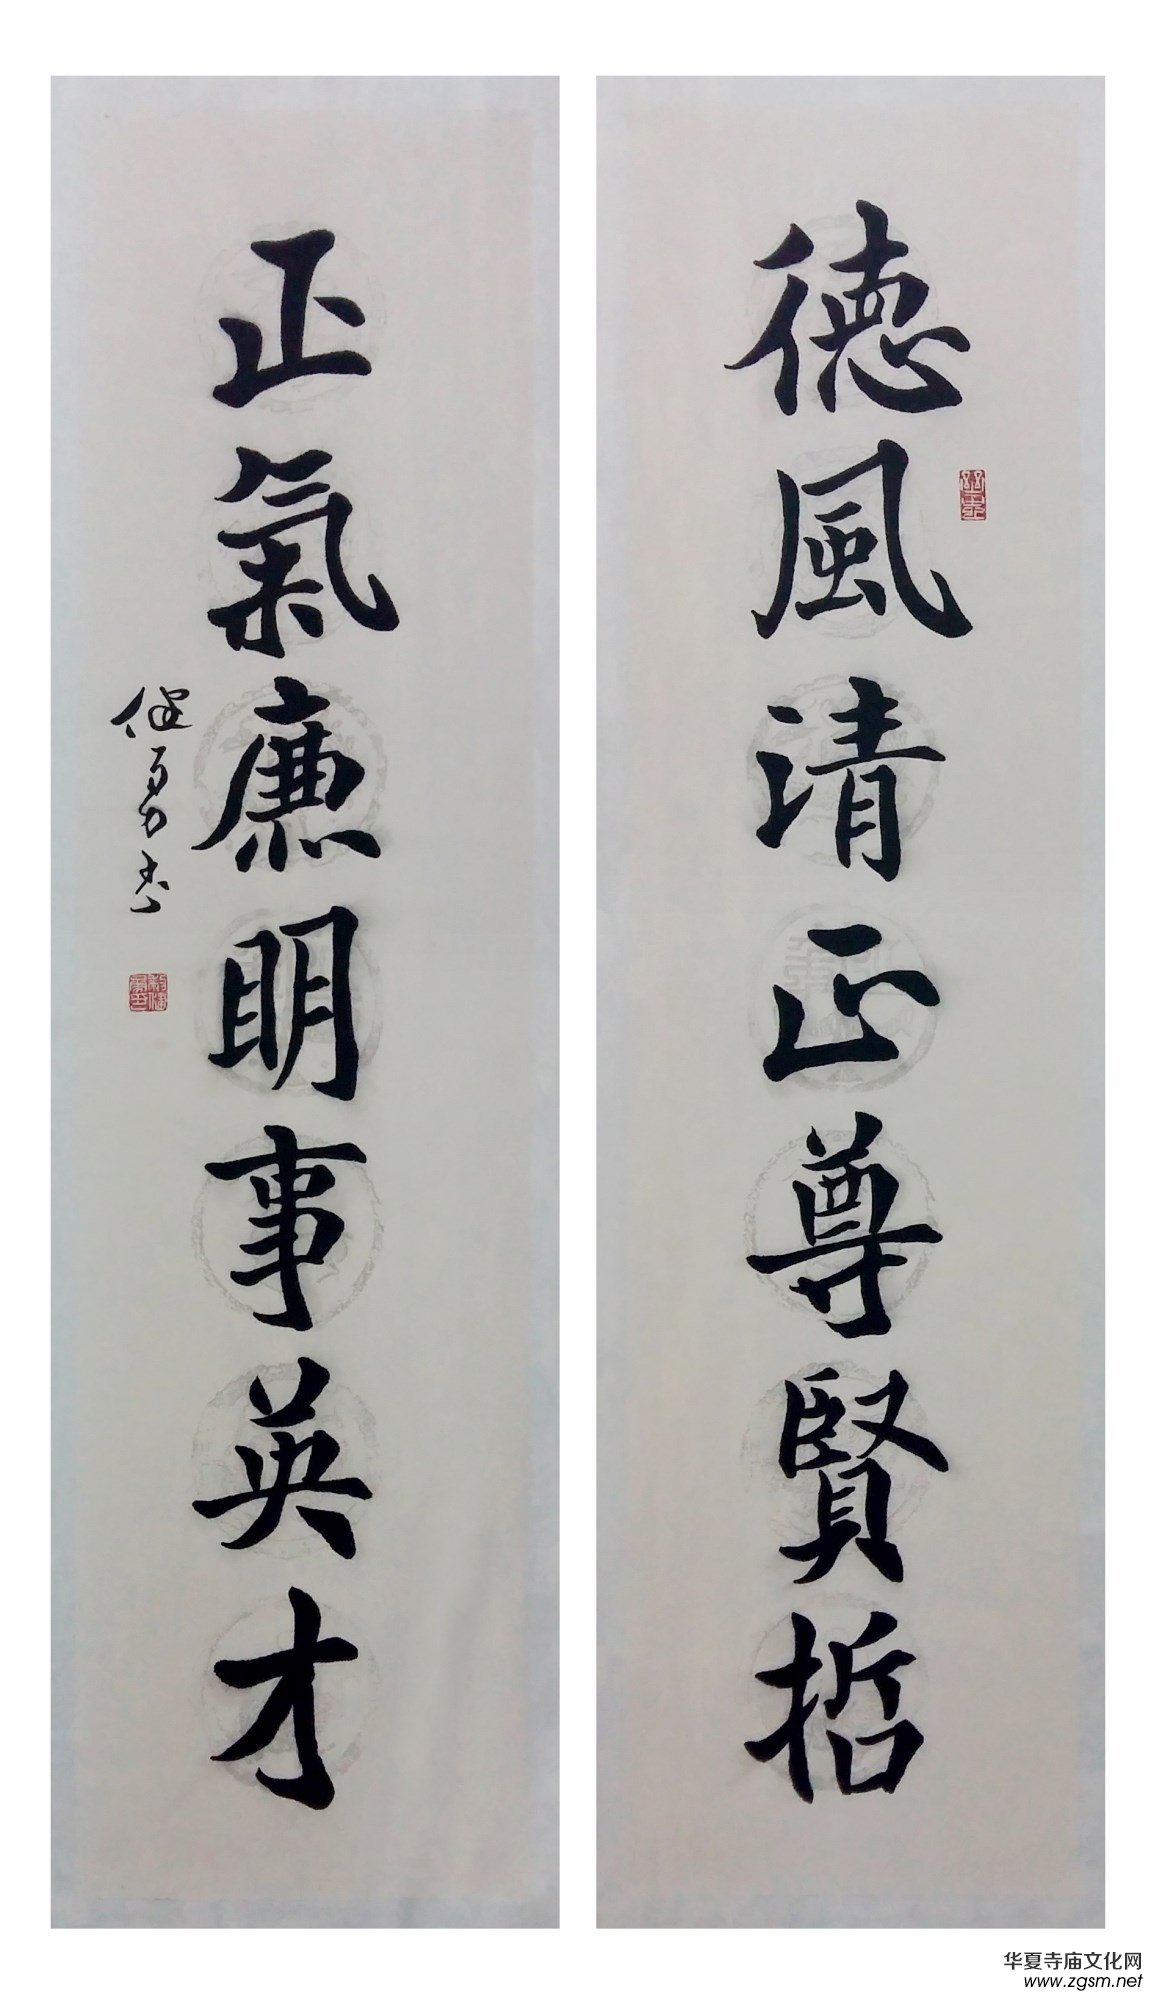 德風清正尊賢哲
正氣廉明事英才
健勇书
华夏寺庙文化网
www.zgsm.net